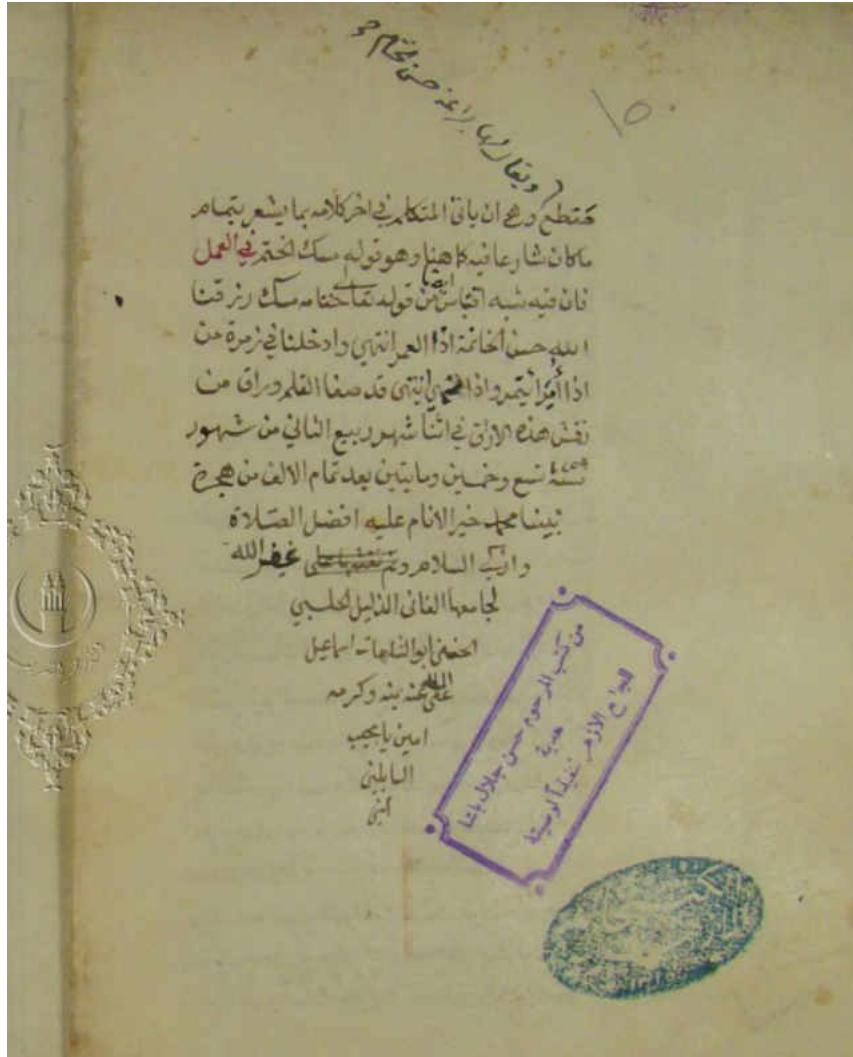 ويقال لها براعة حسن الختام
١٥٠
مقطع وهي ان ياتي المتكلم في اخر كلامه بما يشعر بتمام
ماكان شارعا فيه كما هينا وهو قوله مسك الختم في العمل
فان فيه شبه اقتباس ايضا من قوله تعالى ختامه مسك رزقنا
الله حسن الخاتمة اذا العمر انتهي وادخلنا في زمرة من
اذا أمر ائتمر واذا نهي انتهى قد صغا القلم وراق من
نقش هذه الاوراق في اثنا شهر ربيع الثاني من شهور
سنة تسع وخمسين ومايتين بعد تمام الالف من هجرة
نبينا محمد خير الانام عليه افضل الصلاة
والسلام وتم غفر الله
لجامعها الفاني الذليل الحلبي
الحنفي ابو اسماعيل
بمنه وكرمه
امين يا مجيب
السايلين
من كتب المرحوم حسن جلال باشا
هدية
للجامع الازهر تنفيذا لوصيته